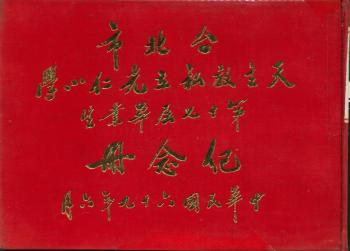 台北市
天主教私立光仁小學
第十七屆畢業生
紀念冊
中華民國六十九年六月